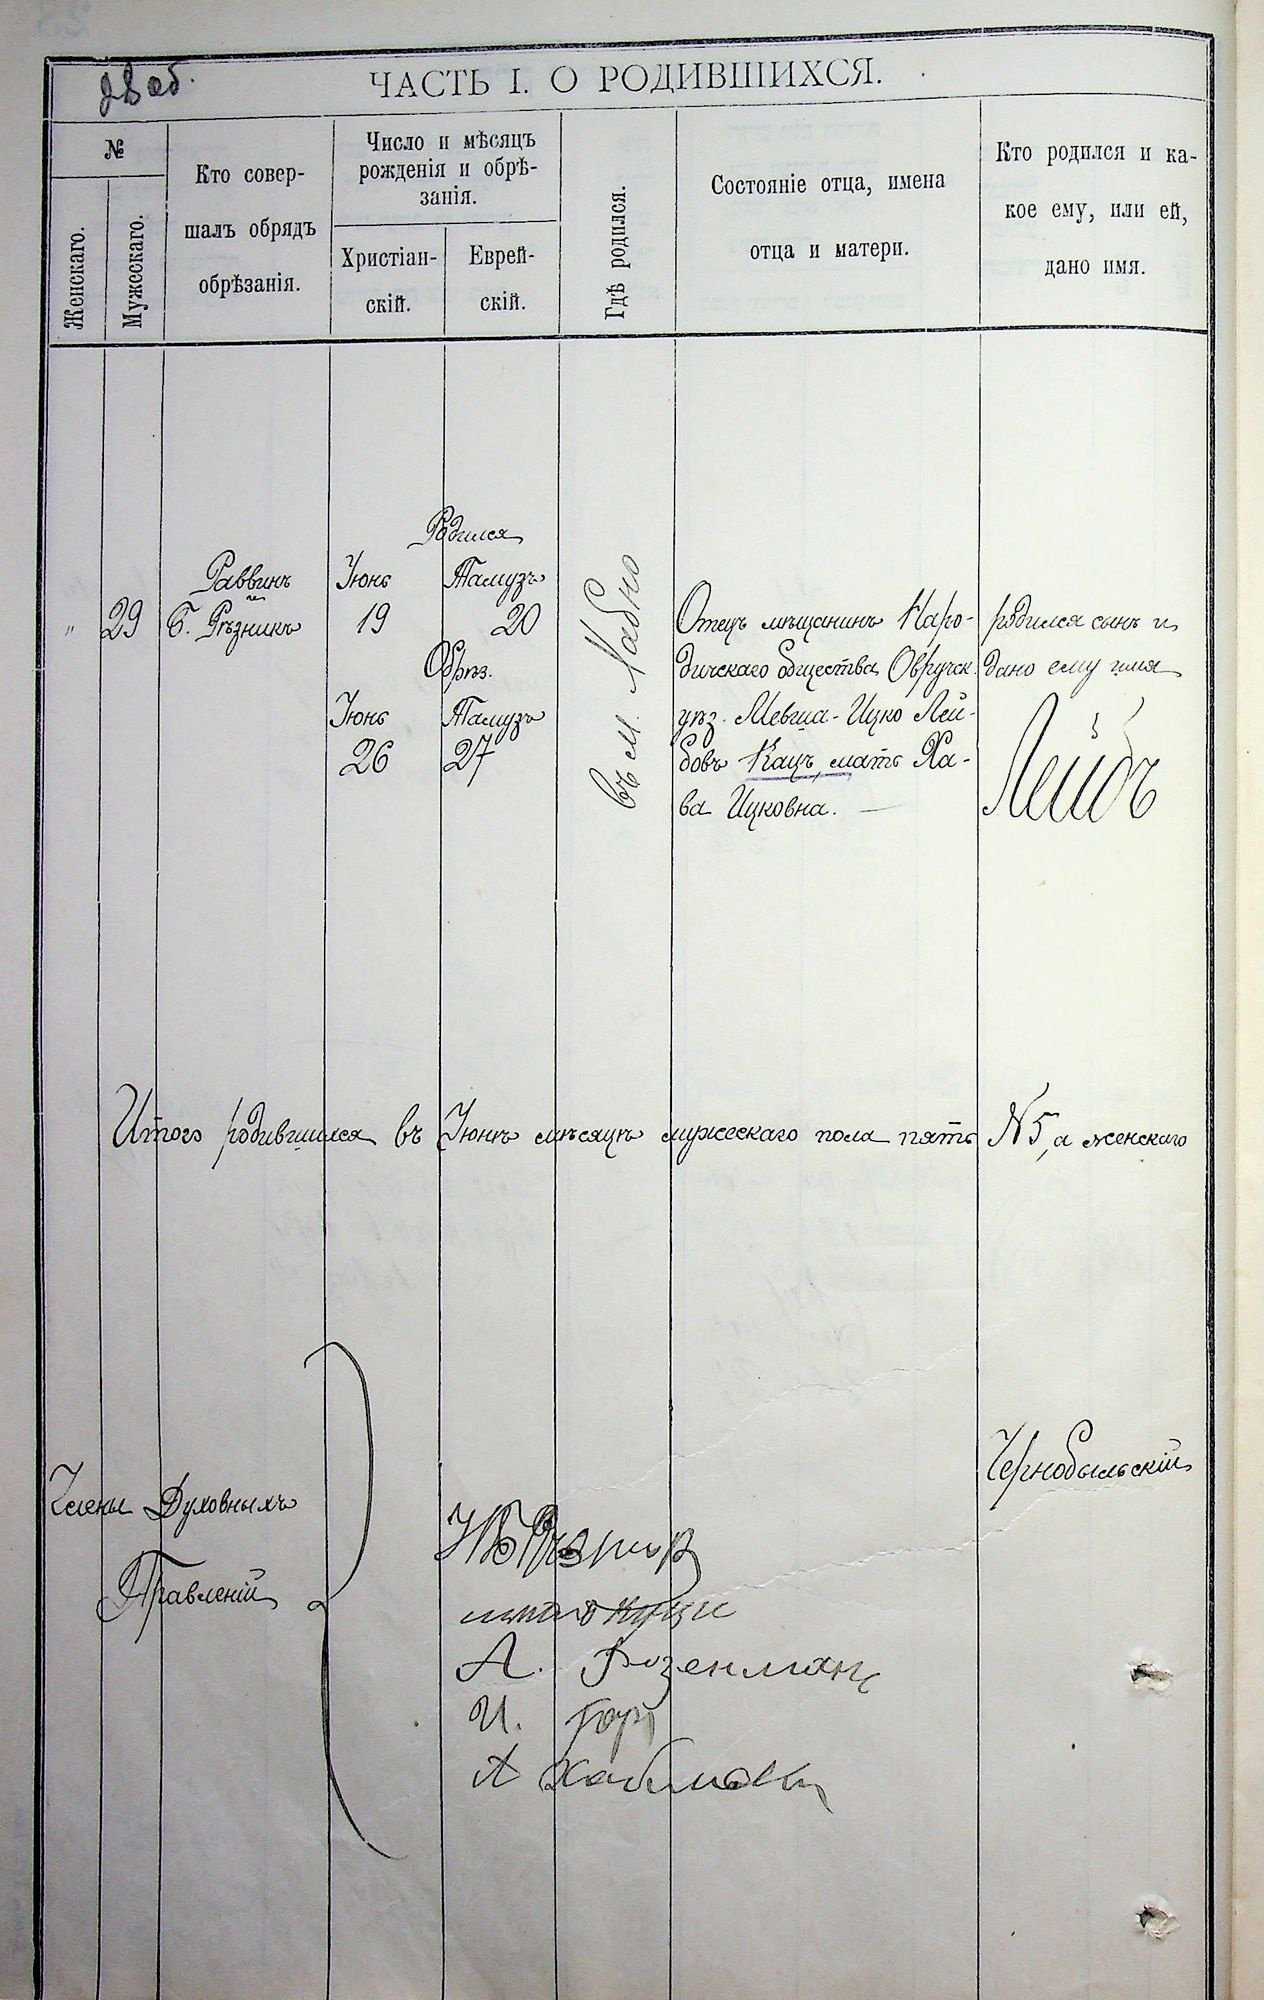 ЧАСТЬ I. О РОДИВШИХСЯ.
№
Женскаго.
Мужескаго.
Кто совер-
шалъ обрядъ
обрѣзанія.
Число и мѣсяцъ
рожденія и обрѣ-
занія.
Христіан-
скій.
Еврей-
скій.
Гдѣ родился.
Состояніе отца, имена
отца и матери.
Кто родился и ка-
кое ему, или ей,
дано имя.
"
29
Раввинъ
и
Б. Рѣзникъ
Родился
Іюнь Тамузъ
19 20
Обрѣз.
Іюнь Тамузъ
26 27
въ м. Хабно
Отецъ мѣщанинъ Наро-
дичскаго общества Овручск.
уѣз. Мевша-Ицко Лей-
бовъ Кацъ, мать Ха-
ва Ицковна. —
родился сынъ и
дано ему имя
Лейбъ
Итого родившихся въ Іюнѣ мѣсяцѣ мужескаго пола пять №5, а женскаго
Чернобыльскій
Члены Духовныхъ
Правленій
А. Розенманъ
И.
А